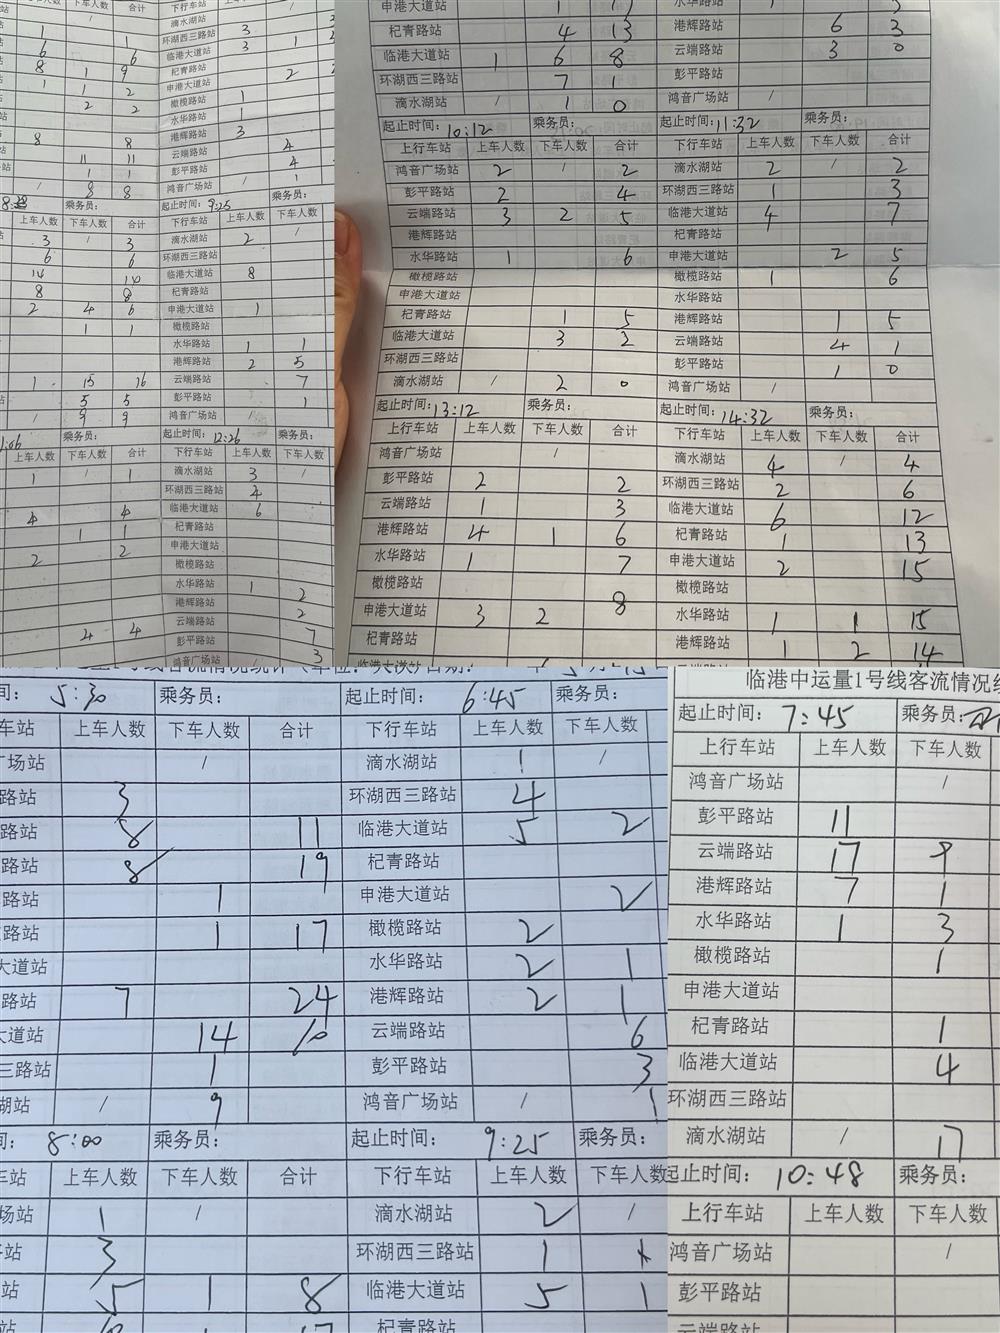 下车人数 下行车站
滴水湖站 3
1 1 环湖西三路站 3 1
6 6 临港大道站 3
8 1 9 杞青路站 2
1 1 2 申港大道站
2 2 橄榄路站 1
水华路站 1
8 8 港辉路站 3
11 11 云端路站 4
1 1 彭平路站 4
/ 8 8 鸿音广场站 / 1
乘务员: 起止时间: 9:25 乘务员:
上车人数 下车人数 合计 下行车站 上车人数 下车人数
3 / 3 滴水湖站 2 /
6 6 环湖西三路站
14 临港大道站 8
8 8 杞青路站
2 4 6 申港大道站 1
1 1 橄榄路站
水华路站 1 1
港辉路站 2 5
1 15 16 云端路站 7
5 5 彭平路站 1
/ 9 9 鸿音广场站 /
乘务员: 起止时间: 12:26 乘务员:
上车人数 下车人数 合计 下行车站 上车人数 下车人数
1 / 1 滴水湖站 3 /
环湖西三路站 4
4 4 临港大道站 6
1 1 杞青路站
2 2 申港大道站
橄榄路站
水华路站 1 2
港辉路站 2
4 4 云端路站 7
彭平路站 3
鸿音广场站
申港大道站 水华路站
杞青路站 4 13 港辉路站 6 3
临港大道站 1 6 8 云端路站 3 0
环湖西三路站 7 1 彭平路站
滴水湖站 / 1 0 鸿音广场站 /
起止时间: 10:12 乘务员: 起止时间: 11:32
上行车站 上车人数 下车人数 合计 下行车站 上车人数 下车人数 合计
鸿音广场站 2 / 2 滴水湖站 2 / 2
彭平路站 2 4 环湖西三路站 1 3
云端路站 3 2 5 临港大道站 4 7
港辉路站 杞青路站
水华路站 1 6 申港大道站 2 5
橄榄路站 橄榄路站 1 6
申港大道站 水华路站
杞青路站 1 5 港辉路站 1 5
临港大道站 3 2 云端路站 4 1
环湖西三路站 彭平路站 1 0
滴水湖站 / 2 0 鸿音广场站 /
起止时间: 13:12 乘务员: 起止时间: 14:32 乘务员:
上行车站 上车人数 下车人数 合计 下行车站 上车人数 下车人数 合计
鸿音广场站 / 滴水湖站 4 / 4
彭平路站 2 2 环湖西三路站 2 6
云端路站 1 3 临港大道站 6 12
港辉路站 4 1 6 杞青路站 1 13
水华路站 1 7 申港大道站 2 15
橄榄路站 橄榄路站
申港大道站 3 2 8 水华路站 1 1 15
杞青路站 港辉路站 1 2 14
间: 5:30 乘务员: 起止时间: 6:45
车站 上车人数 下车人数 合计 下行车站 上车人数 下车人数
广场站 / 滴水湖站 1 /
路站 3 环湖西三路站 4
路站 8 11 临港大道站 5 2
路站 8 19 杞青路站
路站 1 申港大道站 2
路站 1 17 橄榄路站 2
大道站 水华路站 2 1
路站 7 24 港辉路站 2 1
大道站 14 10 云端路站 6
三路站 1 彭平路站 3
湖站 / 9 鸿音广场站 / 1
间: 8:00 乘务员: 起止时间: 9:25 乘务员:
车站 上车人数 下车人数 合计 下行车站 上车人数 下车人数
场站 1 / 滴水湖站 2 /
路站 3 环湖西三路站 1
站 5 1 8 临港大道站 5 1
杞青路站
临港中运量1号线客流情况
起止时间: 7:45 乘务员:
上行车站 上车人数 下车人数
鸿音广场站 /
彭平路站 11
云端路站 17
港辉路站 7 1
水华路站 1 3
橄榄路站 1
申港大道站
杞青路站 1
临港大道站 4
环湖西三路站
滴水湖站 / 17
起止时间: 10:48 乘务员:
上行车站 上车人数 下车人数
鸿音广场站 /
彭平路站
云端路站